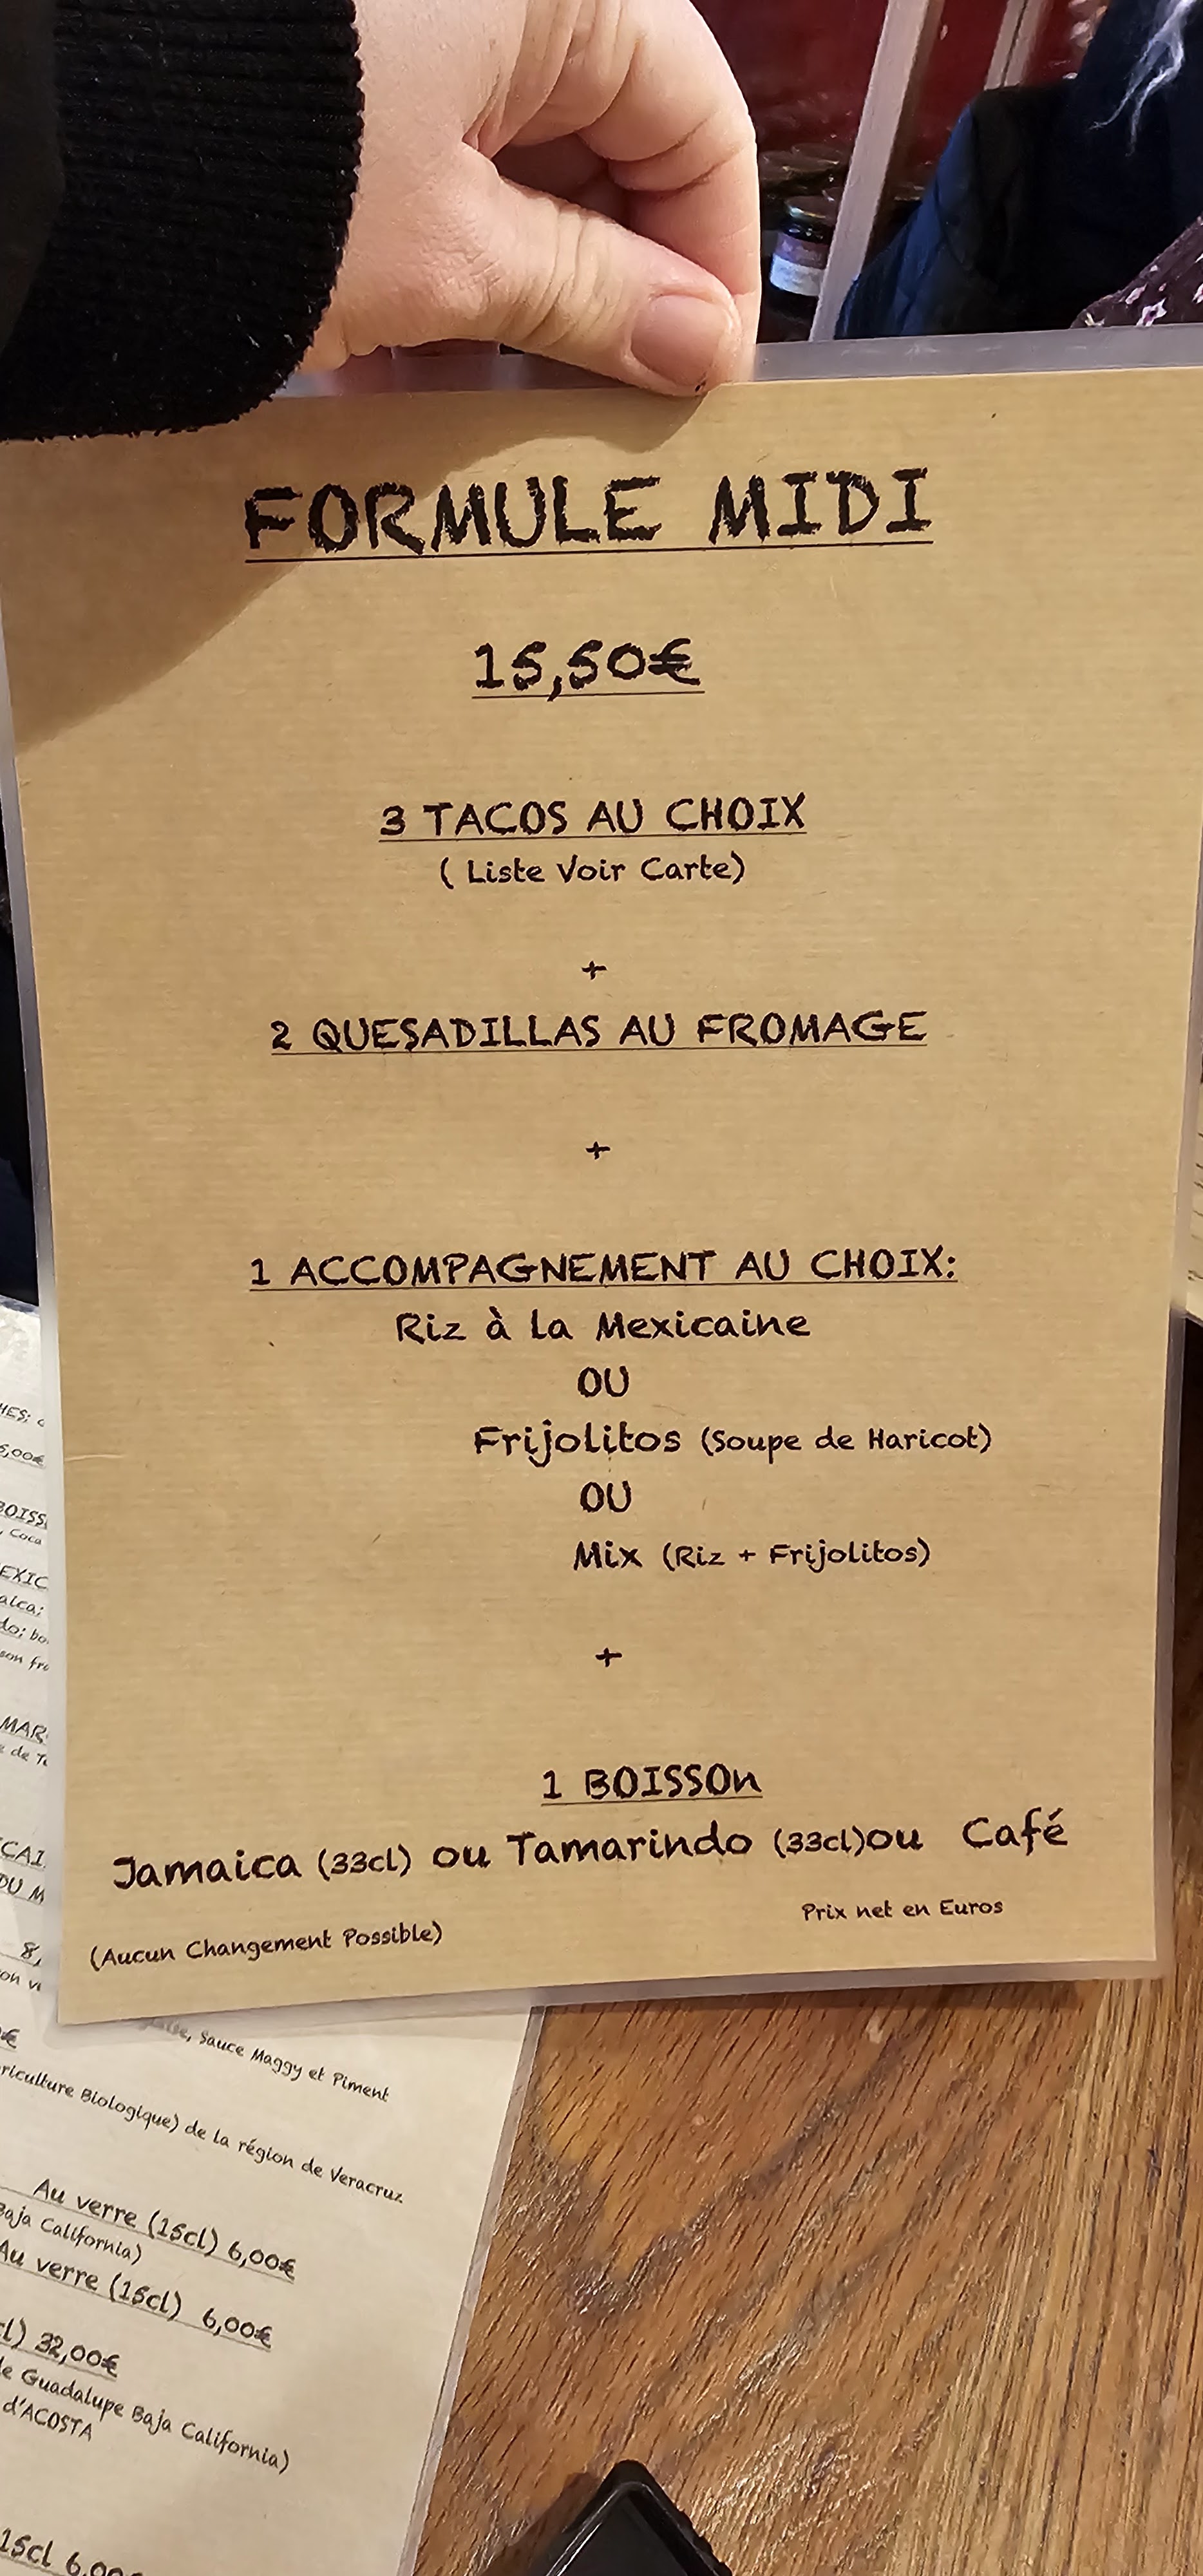 FORMULE MIDI
15,50€
3 TACOS AU CHOIX
( Liste Voir Carte)
+
2 QUESADILLAS AU FROMAGE
+
1 ACCOMPAGNEMENT AU CHOIX:
Riz à la Mexicaine
OU
Frijolitos (Soupe de Haricot)
OU
Mix (Riz + Frijolitos)
+
1 BOISSOn
Jamaica (33cl) ou Tamarindo (33cl)ou Café
Prix net en Euros
(Aucun Changement Possible)
, Sauce Maggy et Piment
Biologique) de la région de Veracruz
Au verre (15cl) 6,00€
Baja California)
Au verre (15cl) 6,00€
32,00€
Guadalupe Baja California)
d'ACOSTA
15cl 6,00€